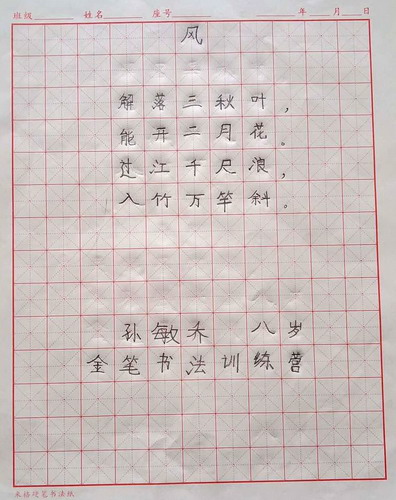 班级 姓名 座号 年 月 日
风
解落三秋叶,
能开二月花。
过江千尺浪,
入竹万竿斜。
孙敏乔 八岁
金笔书法训练营
米格硬笔书法纸